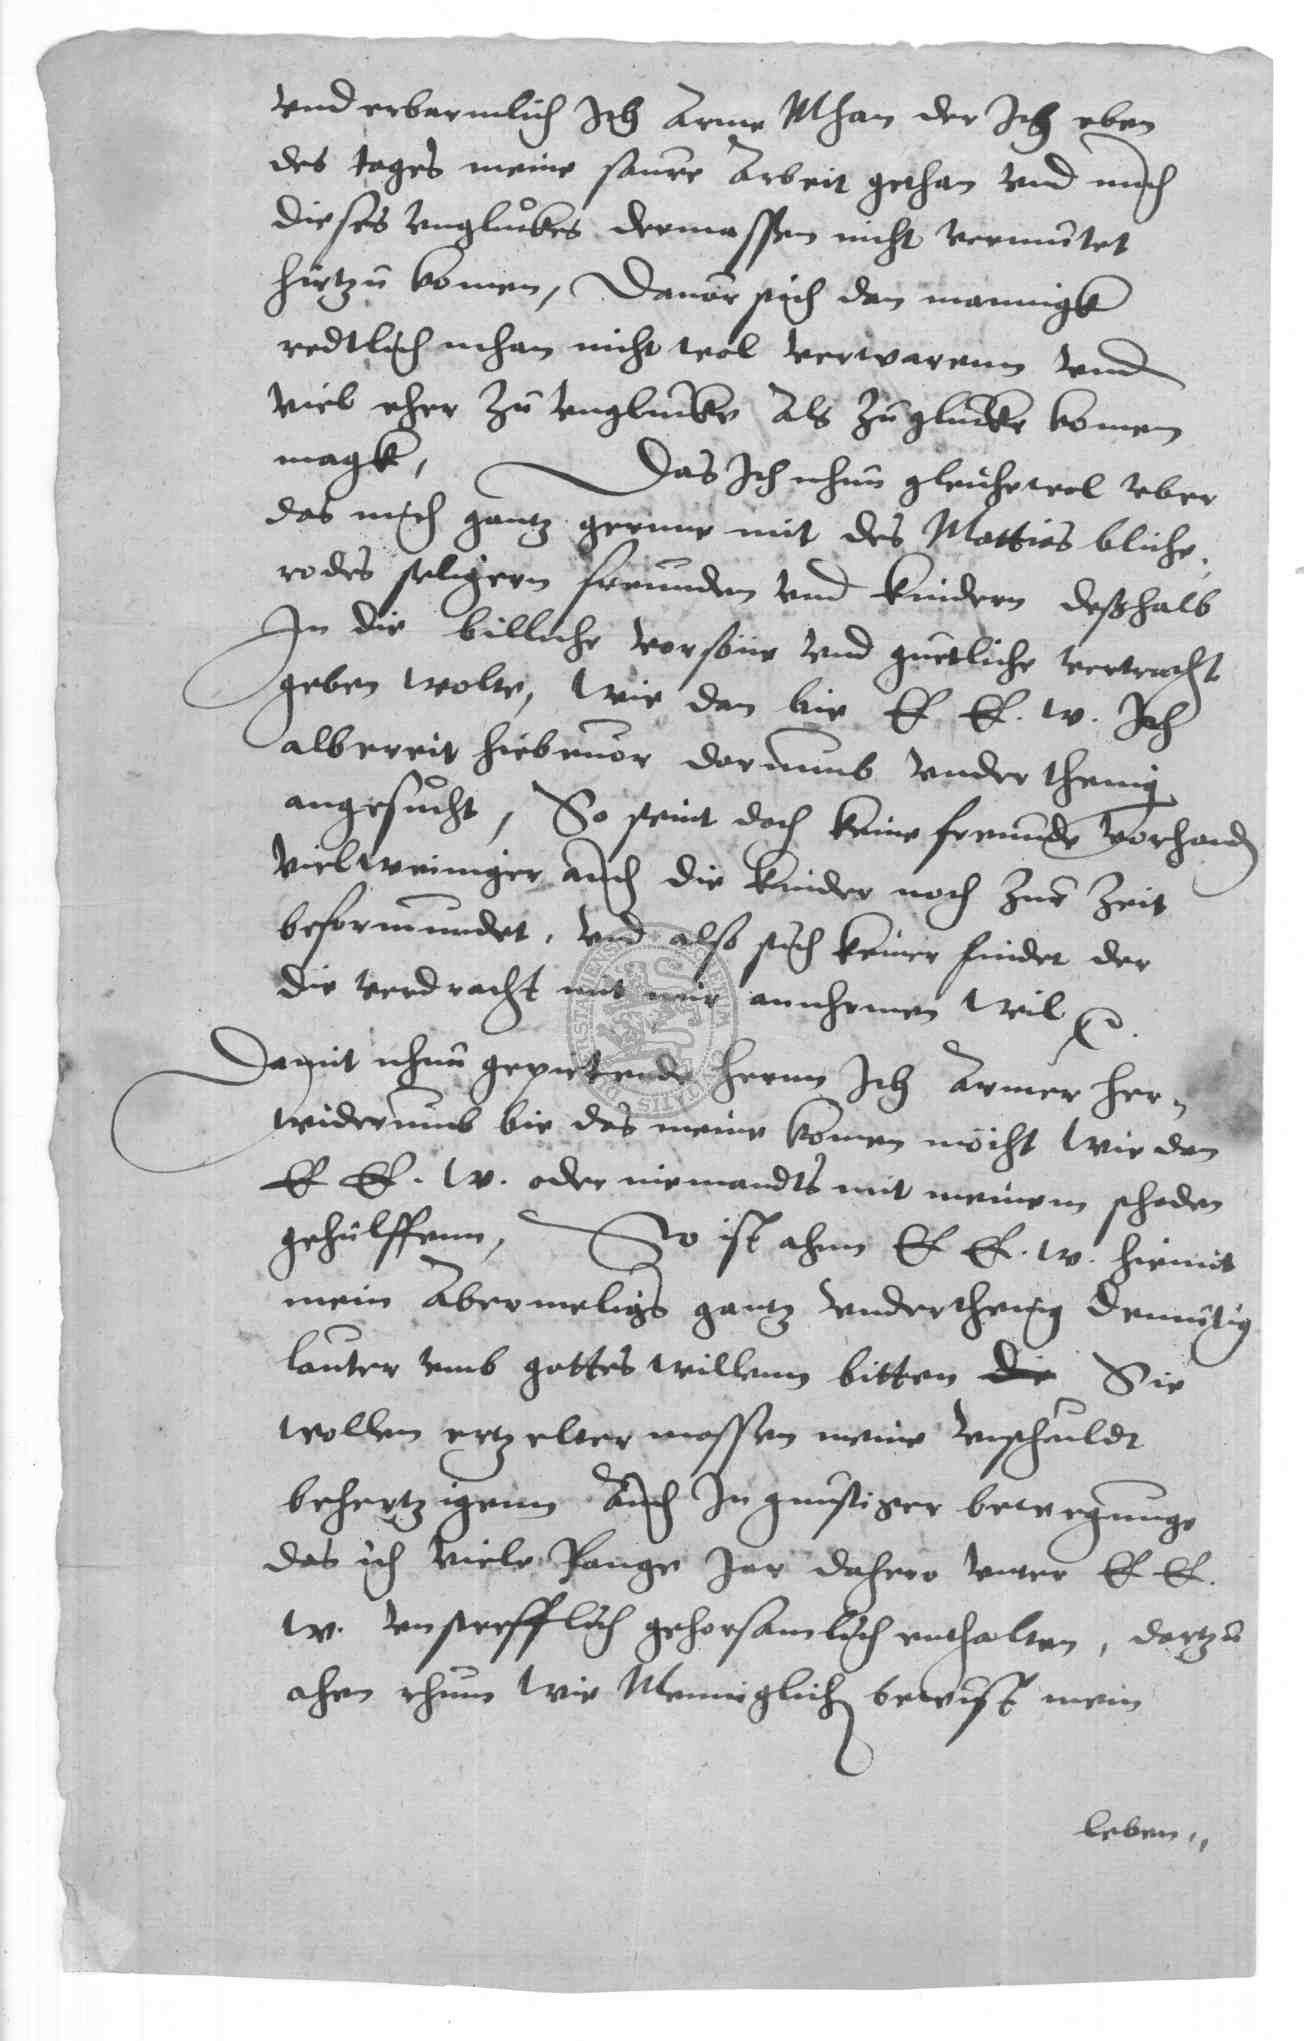 vnd erbarmlich Ich Arme Mhan der Ich eben
des tages meine saure Arbeit gethan vnd mich
dieses vngluckes dermassen nicht vermutet
hirtzu komen, Dauor sich dan mannigk
redtlich mhan nicht wol verwarenn vnd
viel eher zu vnglucke Als zu glucke komen
magk, Das Ich nhun gleichewol vber
das mich gantz gernne mit des Mattias bliche,
rodes seligern freunden vnd kindern deßhalb
In die billiche versöne vnd guetliche vertracht
geben wolte, wie dan bie E E. w. Ich
albereit hiebeuor darumb vnderthenig
angesucht, So seint doch keine freunde vorhanden
vielweiniger auch die kinder noch zur Zeit
beformundet, vnd also sich keiner findet der
die verdracht mit mir annhemen wil
Damit nhun gepietende herrn Ich Armer her,,
widerumb bie das meine komen möcht wie dan
E E. w. oder niemandts mit meinem schaden
gehulffenn, So ist ahnn E E. w. hiemit
mein Abermeligs gantz vnderthenig demutig
lauter vmb gottes willenn bitten die Sie
wollen ertzelter massen meine vnschuldt
behertzigenn Auch In gunstiger bewegunge
das ich viele lange Jar dahero vnter E E.
w. vnstrefflich gehorsamlich enthalten, dartzu
ahen rhum wie Menniglich bewust mein
leben,,